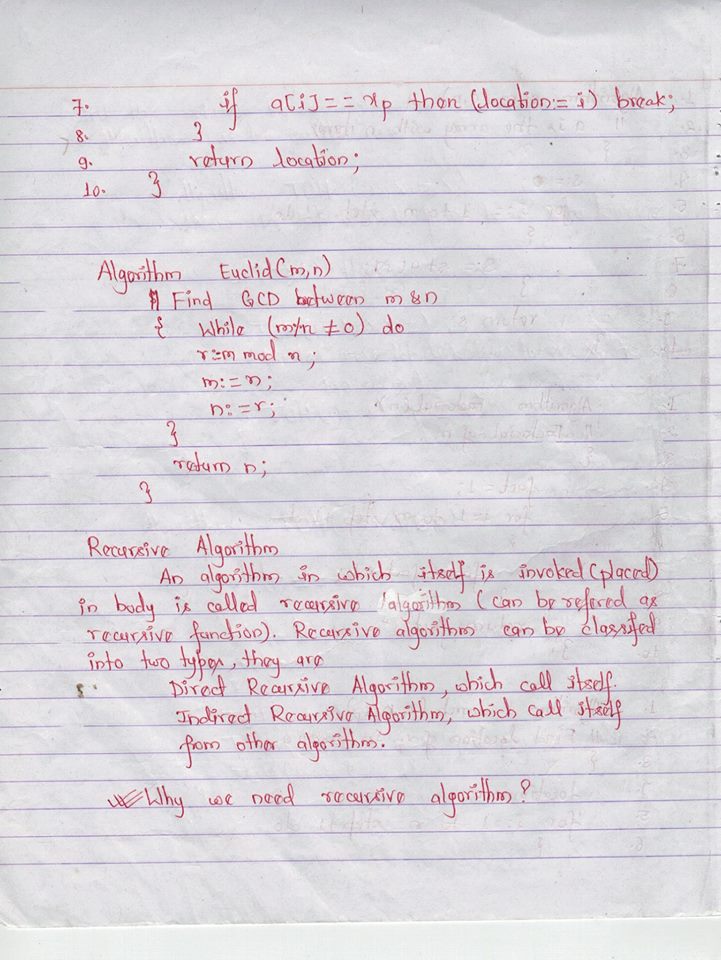 7. if a[i]== xp then (location:= i) break;
8. }
9. return location;
10. }
Algorithm Euclid(m,n)
// Find GCD between m & n
{ While (m%n ≠ 0) do
r=m mod n;
m:=n;
n:=r;
}
return n;
}
Recursive Algorithm
An algorithm in which itself is invoked (placed)
in body is called recursive algorithm (can be refered as
recursive function). Recursive algorithm can be classifed
into two types, they are
Direct Recursive Algorithm, which call itself.
Indirect Recursive Algorithm, which call itself
from other algorithm.
Why we need recursive algorithm?